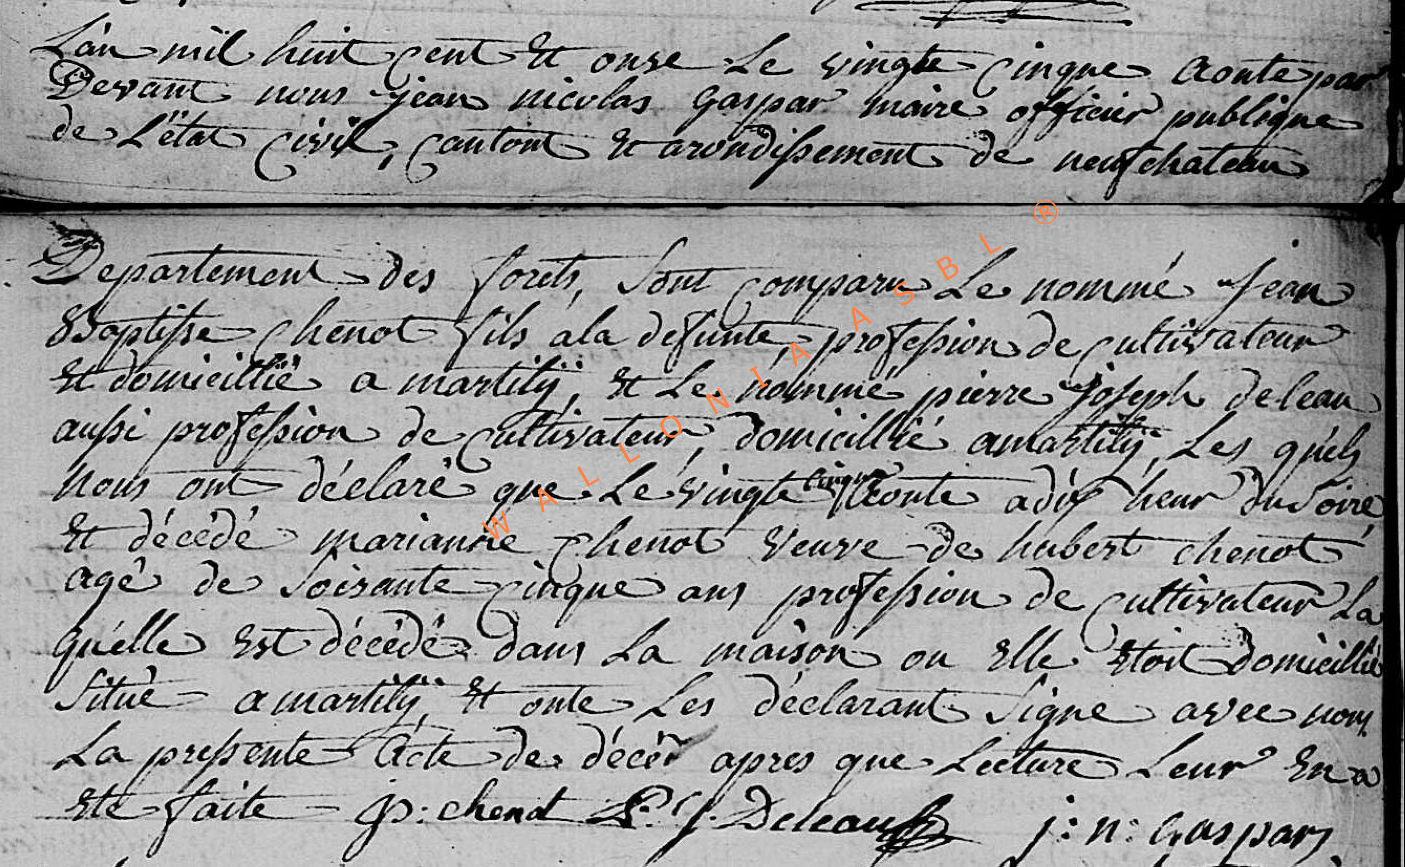 L'än mil huit cent Et onse Le vingte cinque aoute par
Devant nous jean nicolas gaspar maire officier publique
de L'état civil, cantont Et arondissement de neufchateau
Departement des forets, Sont comparu Le nommé Jean
Baptisse chenot fils ala defunte, profession de cultivateur
Et domicillié a martilÿ, Et Le nommé pierre joseph deleau
aussi profession de cultivateur, domicillié amartilÿ, Les quéls
Nous ont déclaré que Le vingte cinque Aoute adix heur du Soire
Et décédé marianne chenot veuve de hubert chenot
agé de Soisante cinque ans profession de cultivateur La
quélle Est décédé dans La maison ou Elle Etoit domicillié
Situé amartilÿ, Et onte Les déclarant Signe avec nous
La pressente Acte de décér apres que Lecture Leur En a
Ete faite jp: chenot P. J. Deleau j: n: Gaspar
WALLONIA ASBL ®